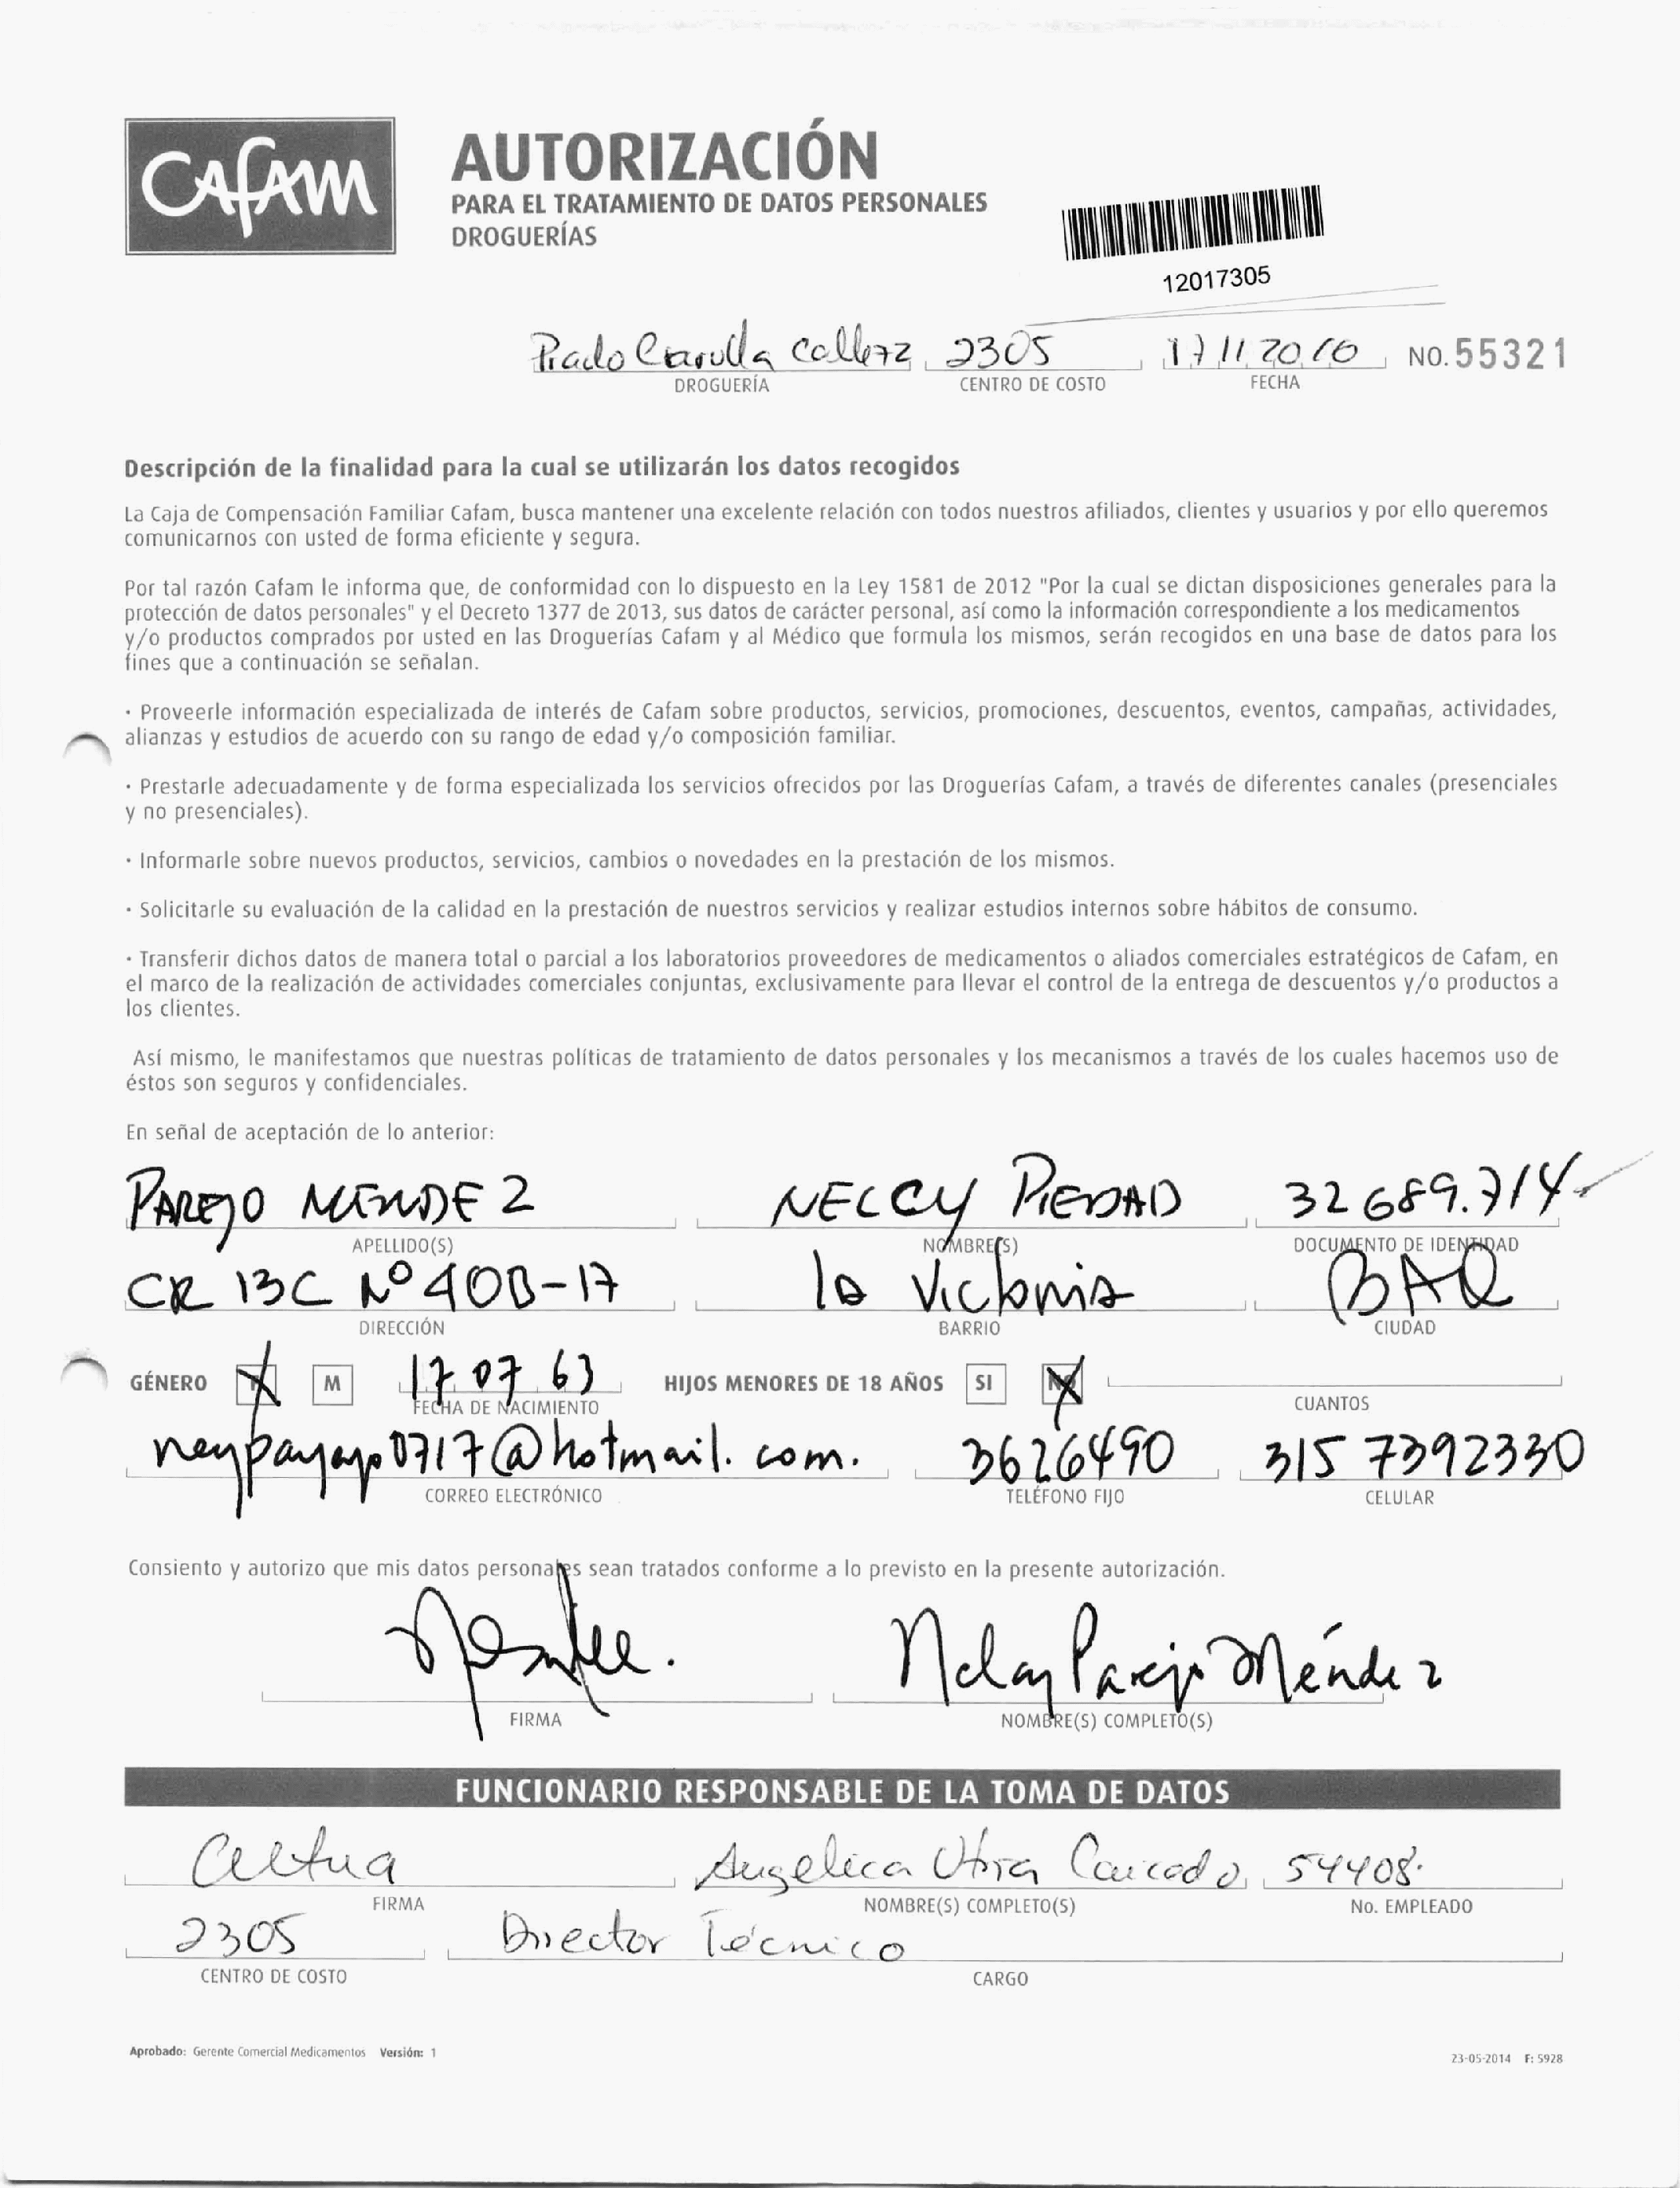 CAFAM
AUTORIZACIÓN
PARA EL TRATAMIENTO DE DATOS PERSONALES
DROGUERÍAS
12017305
Prado Carulla Calle 72 2305 17 11 20 NO. 55321
DROGUERÍA CENTRO DE COSTO FECHA
Descripción de la finalidad para la cual se utilizarán los datos recogidos
La Caja de Compensación Familiar Cafam, busca mantener una excelente relación con todos nuestros afiliados, clientes y usuarios y por ello queremos
comunicarnos con usted de forma eficiente y segura.
Por tal razón Cafam le informa que, de conformidad con lo dispuesto en la Ley 1581 de 2012 "Por la cual se dictan disposiciones generales para la
protección de datos personales" y el Decreto 1377 de 2013, sus datos de carácter personal, así como la información correspondiente a los medicamentos
y/o productos comprados por usted en las Droguerías Cafam y al Médico que formula los mismos, serán recogidos en una base de datos para los
fines que a continuación se señalan.
· Proveerle información especializada de interés de Cafam sobre productos, servicios, promociones, descuentos, eventos, campañas, actividades,
alianzas y estudios de acuerdo con su rango de edad y/o composición familiar.
· Prestarle adecuadamente y de forma especializada los servicios ofrecidos por las Droguerías Cafam, a través de diferentes canales (presenciales
y no presenciales).
· Informarle sobre nuevos productos, servicios, cambios o novedades en la prestación de los mismos.
· Solicitarle su evaluación de la calidad en la prestación de nuestros servicios y realizar estudios internos sobre hábitos de consumo.
· Transferir dichos datos de manera total o parcial a los laboratorios proveedores de medicamentos o aliados comerciales estratégicos de Cafam, en
el marco de la realización de actividades comerciales conjuntas, exclusivamente para llevar el control de la entrega de descuentos y/o productos a
los clientes.
Así mismo, le manifestamos que nuestras políticas de tratamiento de datos personales y los mecanismos a través de los cuales hacemos uso de
éstos son seguros y confidenciales.
En señal de aceptación de lo anterior:
PAREJO MENDEZ NELCY PIEDAD 32689.714
APELLIDO(S) NOMBRE(S) DOCUMENTO DE IDENTIDAD
CR 13C Nº 40B-17 la Victoria BAQ
DIRECCIÓN BARRIO CIUDAD
GÉNERO M 17 07 63 HIJOS MENORES DE 18 AÑOS SI NO
FECHA DE NACIMIENTO CUANTOS
3626490 315 7392330
CORREO ELECTRÓNICO TELÉFONO FIJO CELULAR
Consiento y autorizo que mis datos personales sean tratados conforme a lo previsto en la presente autorización.
Nelcy Parejo Méndez
FIRMA NOMBRE(S) COMPLETO(S)
FUNCIONARIO RESPONSABLE DE LA TOMA DE DATOS
Angelica Utria Caicedo 54408
FIRMA NOMBRE(S) COMPLETO(S) No. EMPLEADO
2305 Director Técnico
CENTRO DE COSTO CARGO
Aprobado: Gerente Comercial Medicamentos Versión: 1 23-05-2014 F: 5928